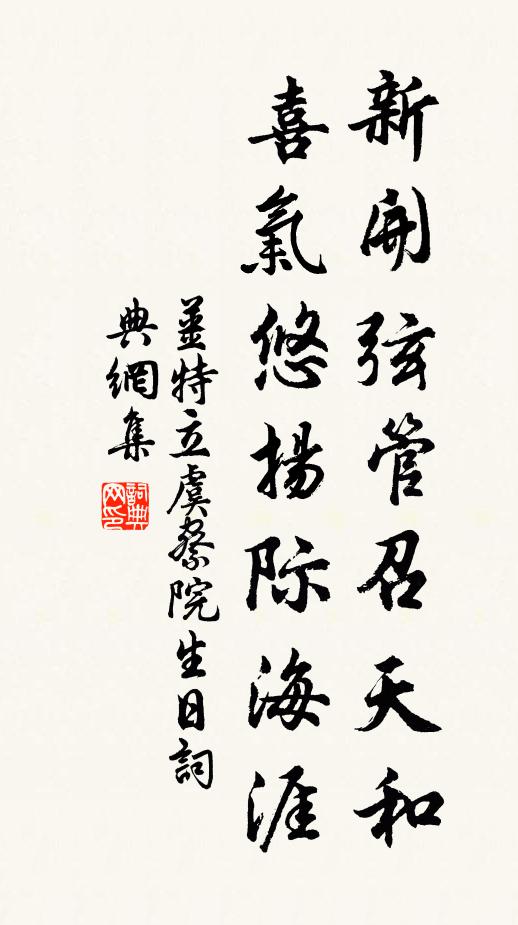 新開弦管召天和
喜氣悠揚际海涯
姜特立虞察院生日詞
典網集
詞典网印